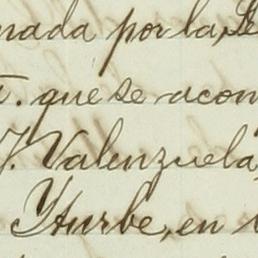 nada por la, Se
T. que se acom
J. Valenzuela,
Yturbe, en